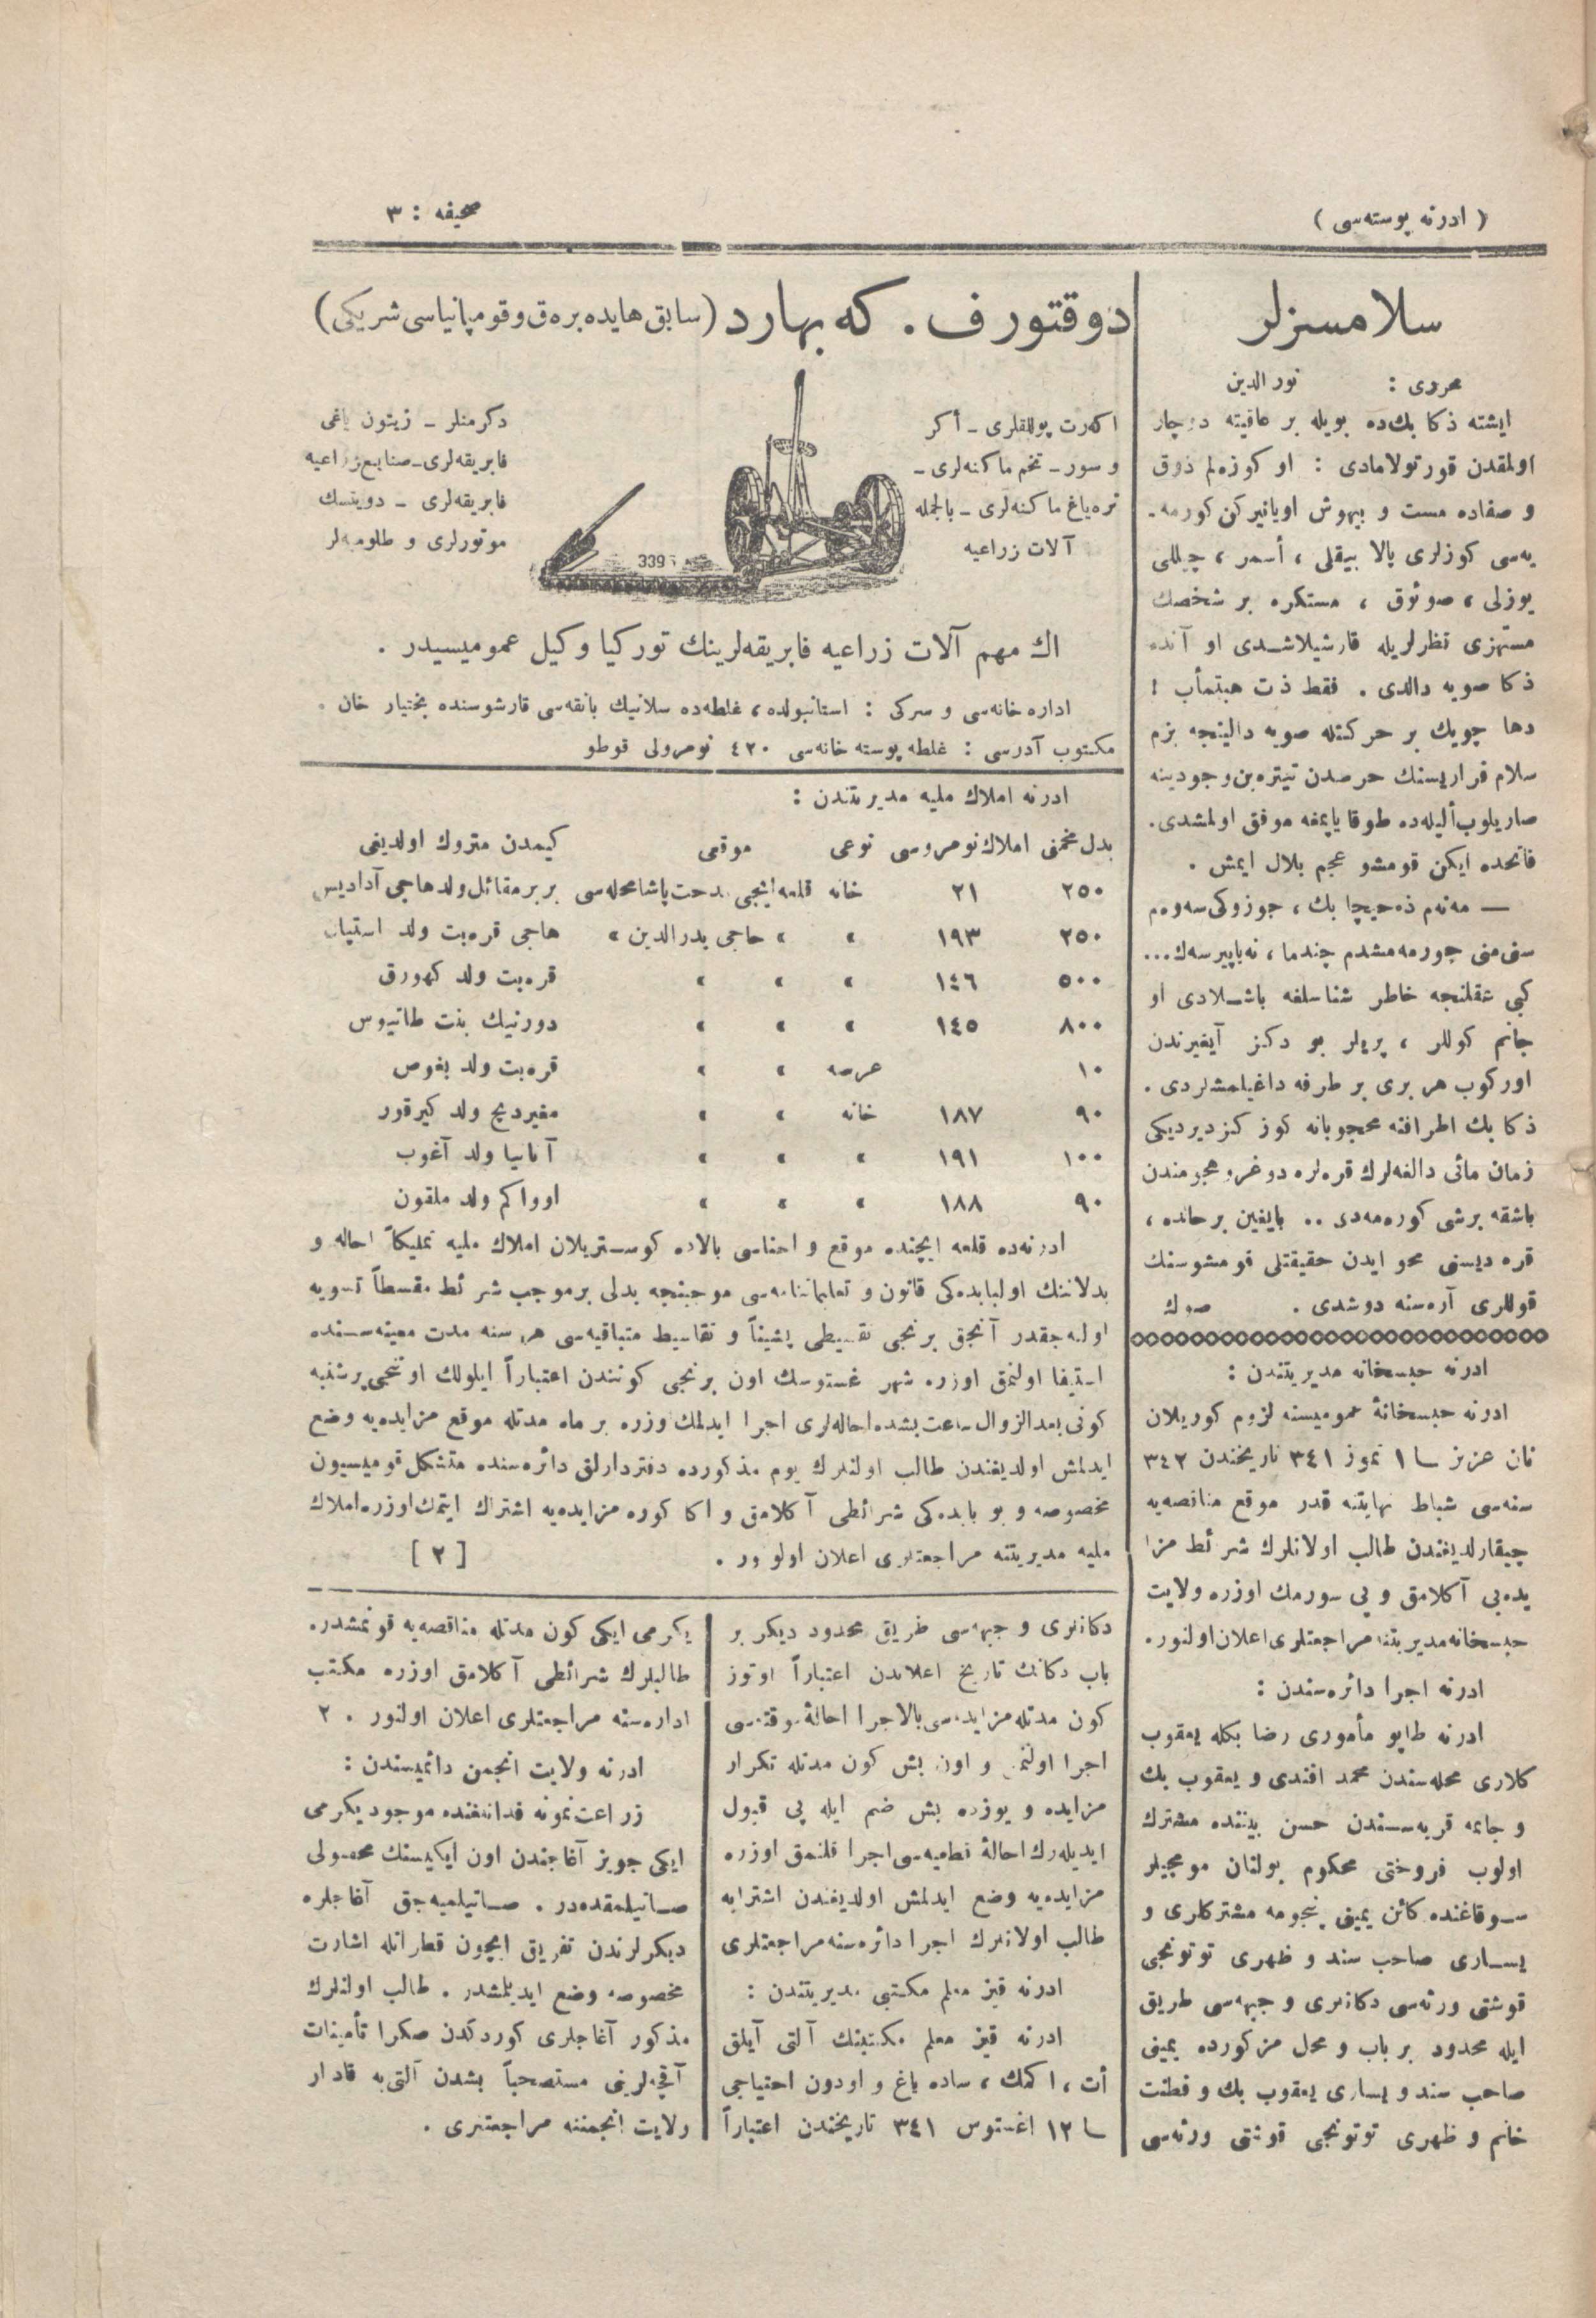 ( ادرنه پوسته‌سی )
صحیفه : ٣
سلامسزلر
محرری : نور الدین
ایشته ذکا بك‌ده بویله بر عاقبته دوچار
اولمقدن قورتولامادی : او کوزه‌لم ذوق
و صفاده مست و بیهوش اویانیرکن کورمه‌ـ
یه‌سی کوزلری پالا بیقلی ، أسمر ، چیللی
یوزلی ، صوئوق ، مستکره بر شخصك
مستهزی نظرلریله قارشیلاشدی او آنده
ذکا صویه دالدی . فقط ذت هیتمأب !
دها چویك بر حرکتله صویه دالینجه بزم
سلام فراریسنك حرصدن تیتره‌ین وجودینه
صاریلوب ألیله‌ده طوقا یاپمغه موفق اولمشدی.
فاتحده ایکن قومشو عجم بلال ایمش .
— مه‌نم ذه‌حیچا بك ، جوزوکی سه‌وه‌م
سنی منی جورمه‌مشدم چندما ، نه‌یاپیرسه‌ك...
کبی عقلنجه خاطر شناسلغه باشلادی او
جانم کوللر ، پریلر بو دکز آیغیرندن
اورکوب هر بری بر طرفه داغیلمشلردی .
ذکا بك اطرافنه محجوبانه کوز کزدیردیکی
زمان مائی دالغه‌لرك قره‌لره دوغرو هجومندن
باشقه برشی کوره‌مه‌دی .. بایغین بر حالده ،
قره دیسنی محو ایدن حقیقتلی قومشوسنك
قوللری آره‌سنه دوشدی . صوك
ادرنه حبسخانه مدیریتندن :
ادرنه حبسخانهٔ عمومیسنه لزوم کوریلان
نان عزیز سا ١ تموز ٣٤١ تاریخندن ٣٤٢
سنه‌سی شباط نهایتنه قدر موقع مناقصه‌یه
چیقارلدیغندن طالب اولانلرك شرائط مزا
یده‌یی آکلامق و پی سورمك اوزره ولایت
حبسخانه مدیریتنه مراجعتلری اعلان اولنور.
ادرنه اجرا دائره‌سندن :
ادرنه طاپو مأموری رضا بکله یعقوب
کلاری محله‌سندن محمد افندی و یعقوب بك
و جامه قریه‌سندن حسن بیننده مشترك
اولوب فروختی محکوم بولنان موجبلر
سوقاغنده کائن یمینی پنجومه مشترکاری و
یساری صاحب سند و ظهری توتونجی
قوشتی ورثه‌سی دکانلری و جبهه‌سی طریق
ایله محدود بر باب و محل مزکورده یمینی
صاحب سند و یساری یعقوب بك و فطنت
خانم و ظهری توتونجی قوشتی ورثه‌سی
دوقتور ف . که بهارد (سابق هایده بره‌ق و قومپانیاسی شریکی)
اکه‌رت پوللقلری ـ أکر
و سور ـ تخم ماکنه‌لری ـ
تره‌یاغ ماکنه‌لری ـ بالجمله
آلات زراعیه
دکرمنلر ـ زیتون یاغی
فابریقه‌لری ـ صنایع زراعیه
فابریقه‌لری ـ دویتسك
موتورلری و طلومبه‌لر
339
اك مهم آلات زراعیه فابریقه‌لرینك تورکیا وکیل عمومیسیدر .
اداره خانه‌سی و سرکی : استانبولده ، غلطه‌ده سلانیك بانقه‌سی قارشوسنده بختیار خان .
مکتوب آدرسی : غلطه پوسته خانه‌سی ٤٢٠ نومرولی قوطو
ادرنه املاك ملیه مدیریتندن :
بدل مخمنی املاك نومروسی نوعی موقعی کیمدن متروك اولدیغی
٢٥٠ ٢١ خانه قلعه ایچی مدحت پاشا محله‌سی بربر مقائل ولد هاجی آدادیس
٢٥٠ ١٩٣ » » حاجی بدرالدین » هاجی قره‌بت ولد استپان
٥٠٠ ١٤٦ » » » قره‌بت ولد کهورق
٨٠٠ ١٤٥ » » » دورنیك بنت طانیوس
١٠ عرصه » » قره‌بت ولد بغوص
٩٠ ١٨٧ خانه » » مغیردیچ ولد کیرقور
١٠٠ ١٩١ » » » آنانیا ولد آغوب
٩٠ ١٨٨ » » » اوواکم ولد ملقون
ادرنه‌ده قلعه ایچنده موقع و اجناسی بالاده کوستریلان املاك ملیه تملیکاً احاله و
بدلاتنك اولبابده‌کی قانون و تعلیماتنامه‌سی موجبنجه بدلی برموجب شرائط مقسطاً تسویه
اوله‌جقدر آنجق برنجی تقسیطی پشیناً و تقاسیط متباقیه‌سی هر سنه مدت معینه‌سنده
استیفا اولنمق اوزره شهر غستوسك اون برنجی کوننندن اعتباراً ایلولك اوننجی پرشنبه
کونی بعد الزوال ساعت بشده احاله‌لری اجرا ایدلمك وزره بر ماه مدتله موقع مزایده‌یه وضع
ایدلمش اولدیغندن طالب اولنلرك یوم مذکورده دفتردارلق دائره‌سنده متشکل قومیسیون
مخصوصه و بو بابده‌کی شرائطی آکلامق و اکا کوره مزایده‌یه اشتراك ایتمك اوزره املاك
ملیه مدیریتنه مراجعتلری اعلان اولنور . [ ٢ ]
دکانلری و جبهه‌سی طریق محدود دیکر بر
باب دکانك تاریخ اعلاندن اعتباراً اوتوز
کون مدتله مزایده‌سی بالاجرا احالهٔ موقته‌سی
اجرا اولنمش و اون بش کون مدتله تکرار
مزایده و یوزده بش ضم ایله پی قبول
ایدیله‌رك احالهٔ قطعیه‌سی اجرا قلنمق اوزره
مزایده‌یه وضع ایدلمش اولدیغندن اشترایه
طالب اولانلرك اجرا دائره‌سنه مراجعتلری
ادرنه قیز معلم مکتبی مدیریتندن :
ادرنه قیز معلم مکتبینك آلتی آیلق
أت ، اکمك ، ساده یاغ و اودون احتیاجی
سا ١٢ اغستوس ٣٤١ تاریخندن اعتباراً
یکرمی ایکی کون مدتله مناقصه‌یه قونمشدر.
طالبلرك شرائطی آکلامق اوزره مکتب
اداره‌سنه مراجعتلری اعلان اولنور . ٢
ادرنه ولایت انجمن دائمیسندن :
زراعت نمونه فدانلغنده موجود یکرمی
ایکی جویز آغاجندن اون ایکیسنك محصولی
صاتیلمقده‌در . صاتیلمیه‌جق آغاجلره
دیکرلرندن تفریق ایچون قطرانله اشارت
مخصوصه وضع ایدیلمشدر . طالب اولنلرك
مذکور آغاجلری کوردکدن صکرا تأمینات
آقچه‌لرینی مستصحباً بشدن آلتی‌یه قادار
ولایت انجمننه مراجعتلری .